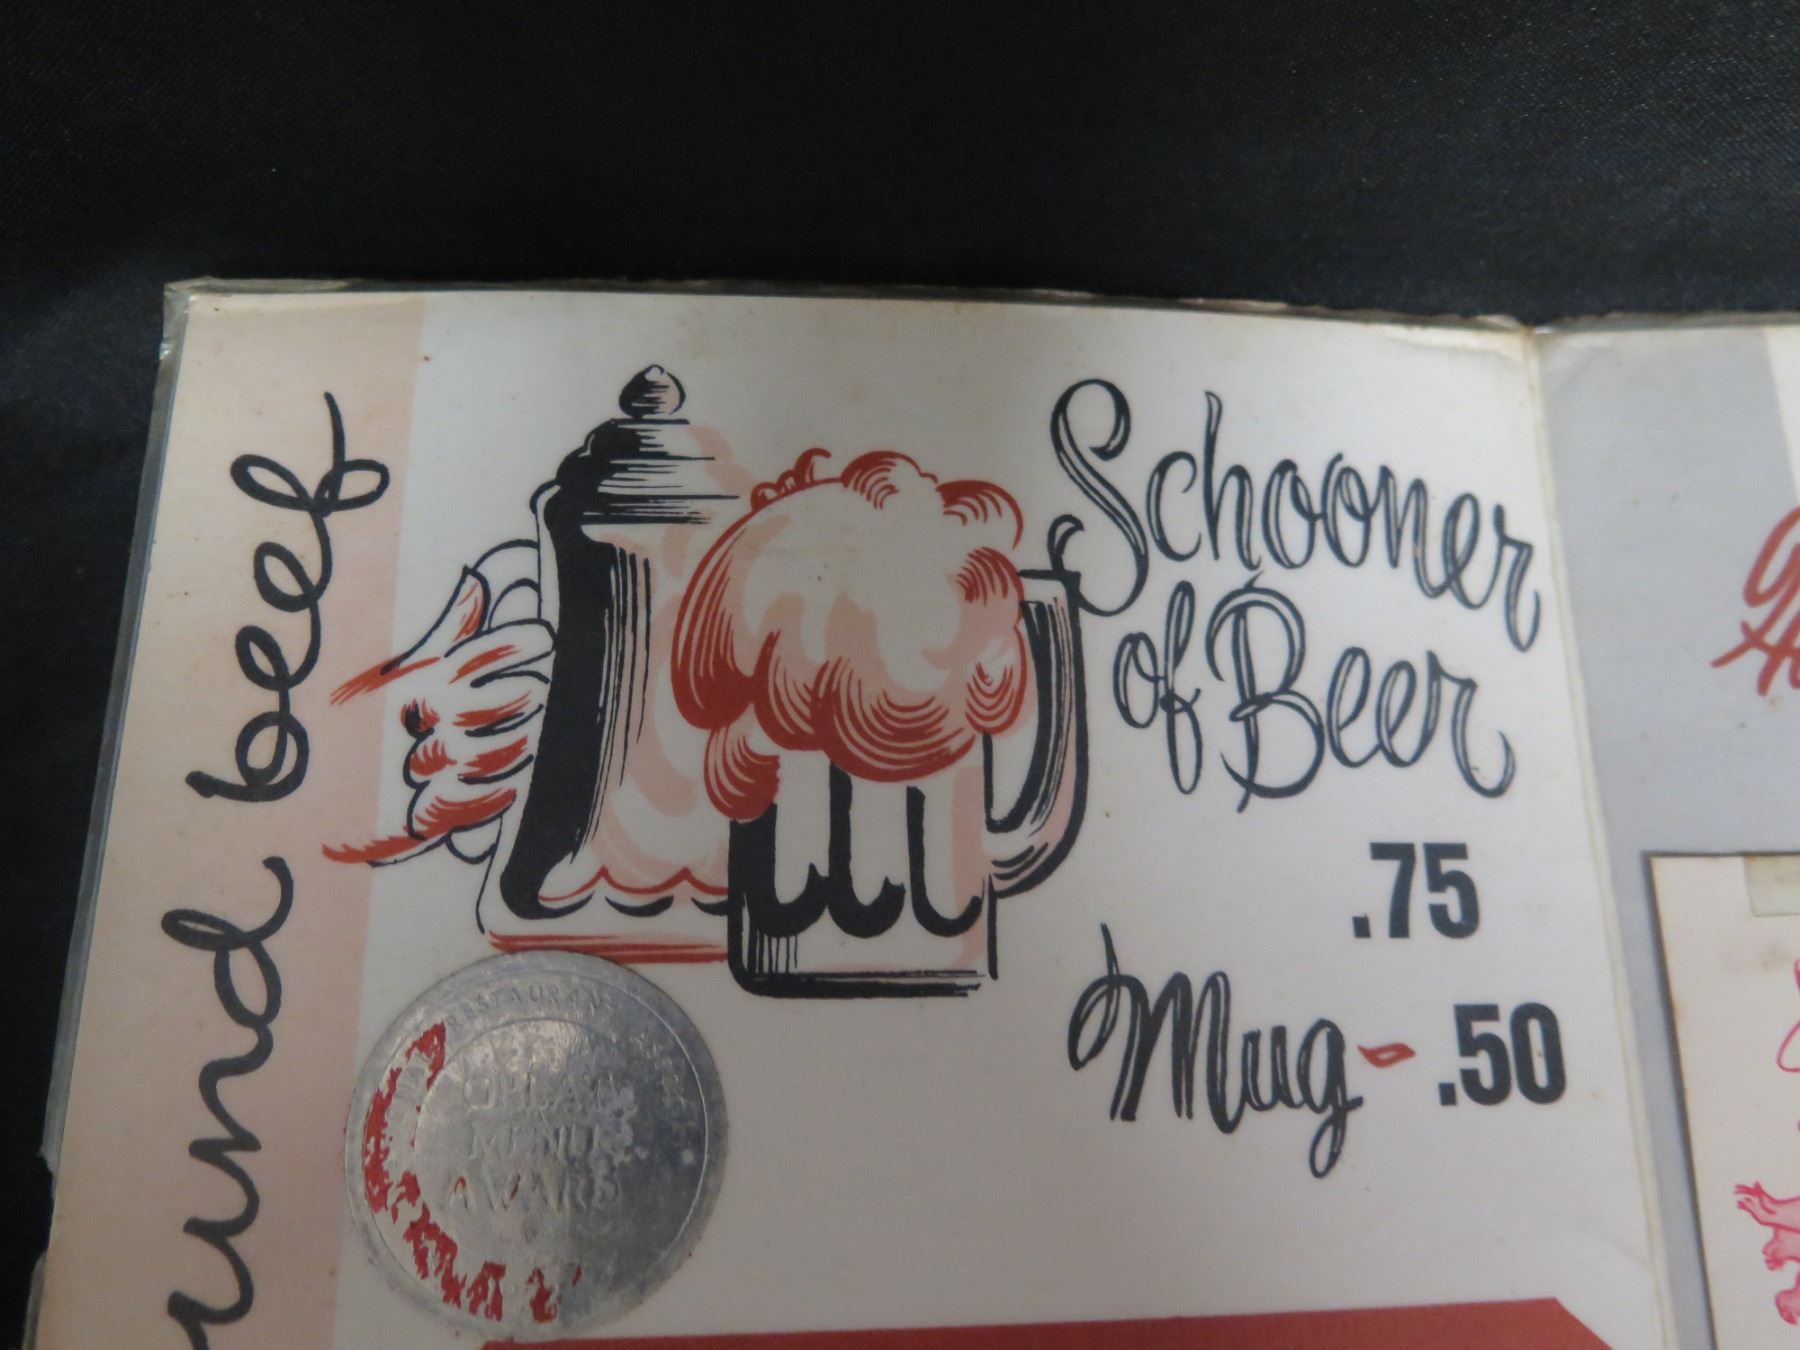 Schooner
of Beer
.75
Mug - .50
und beef
RESTAURANT
GREAT
MENU
AWARD